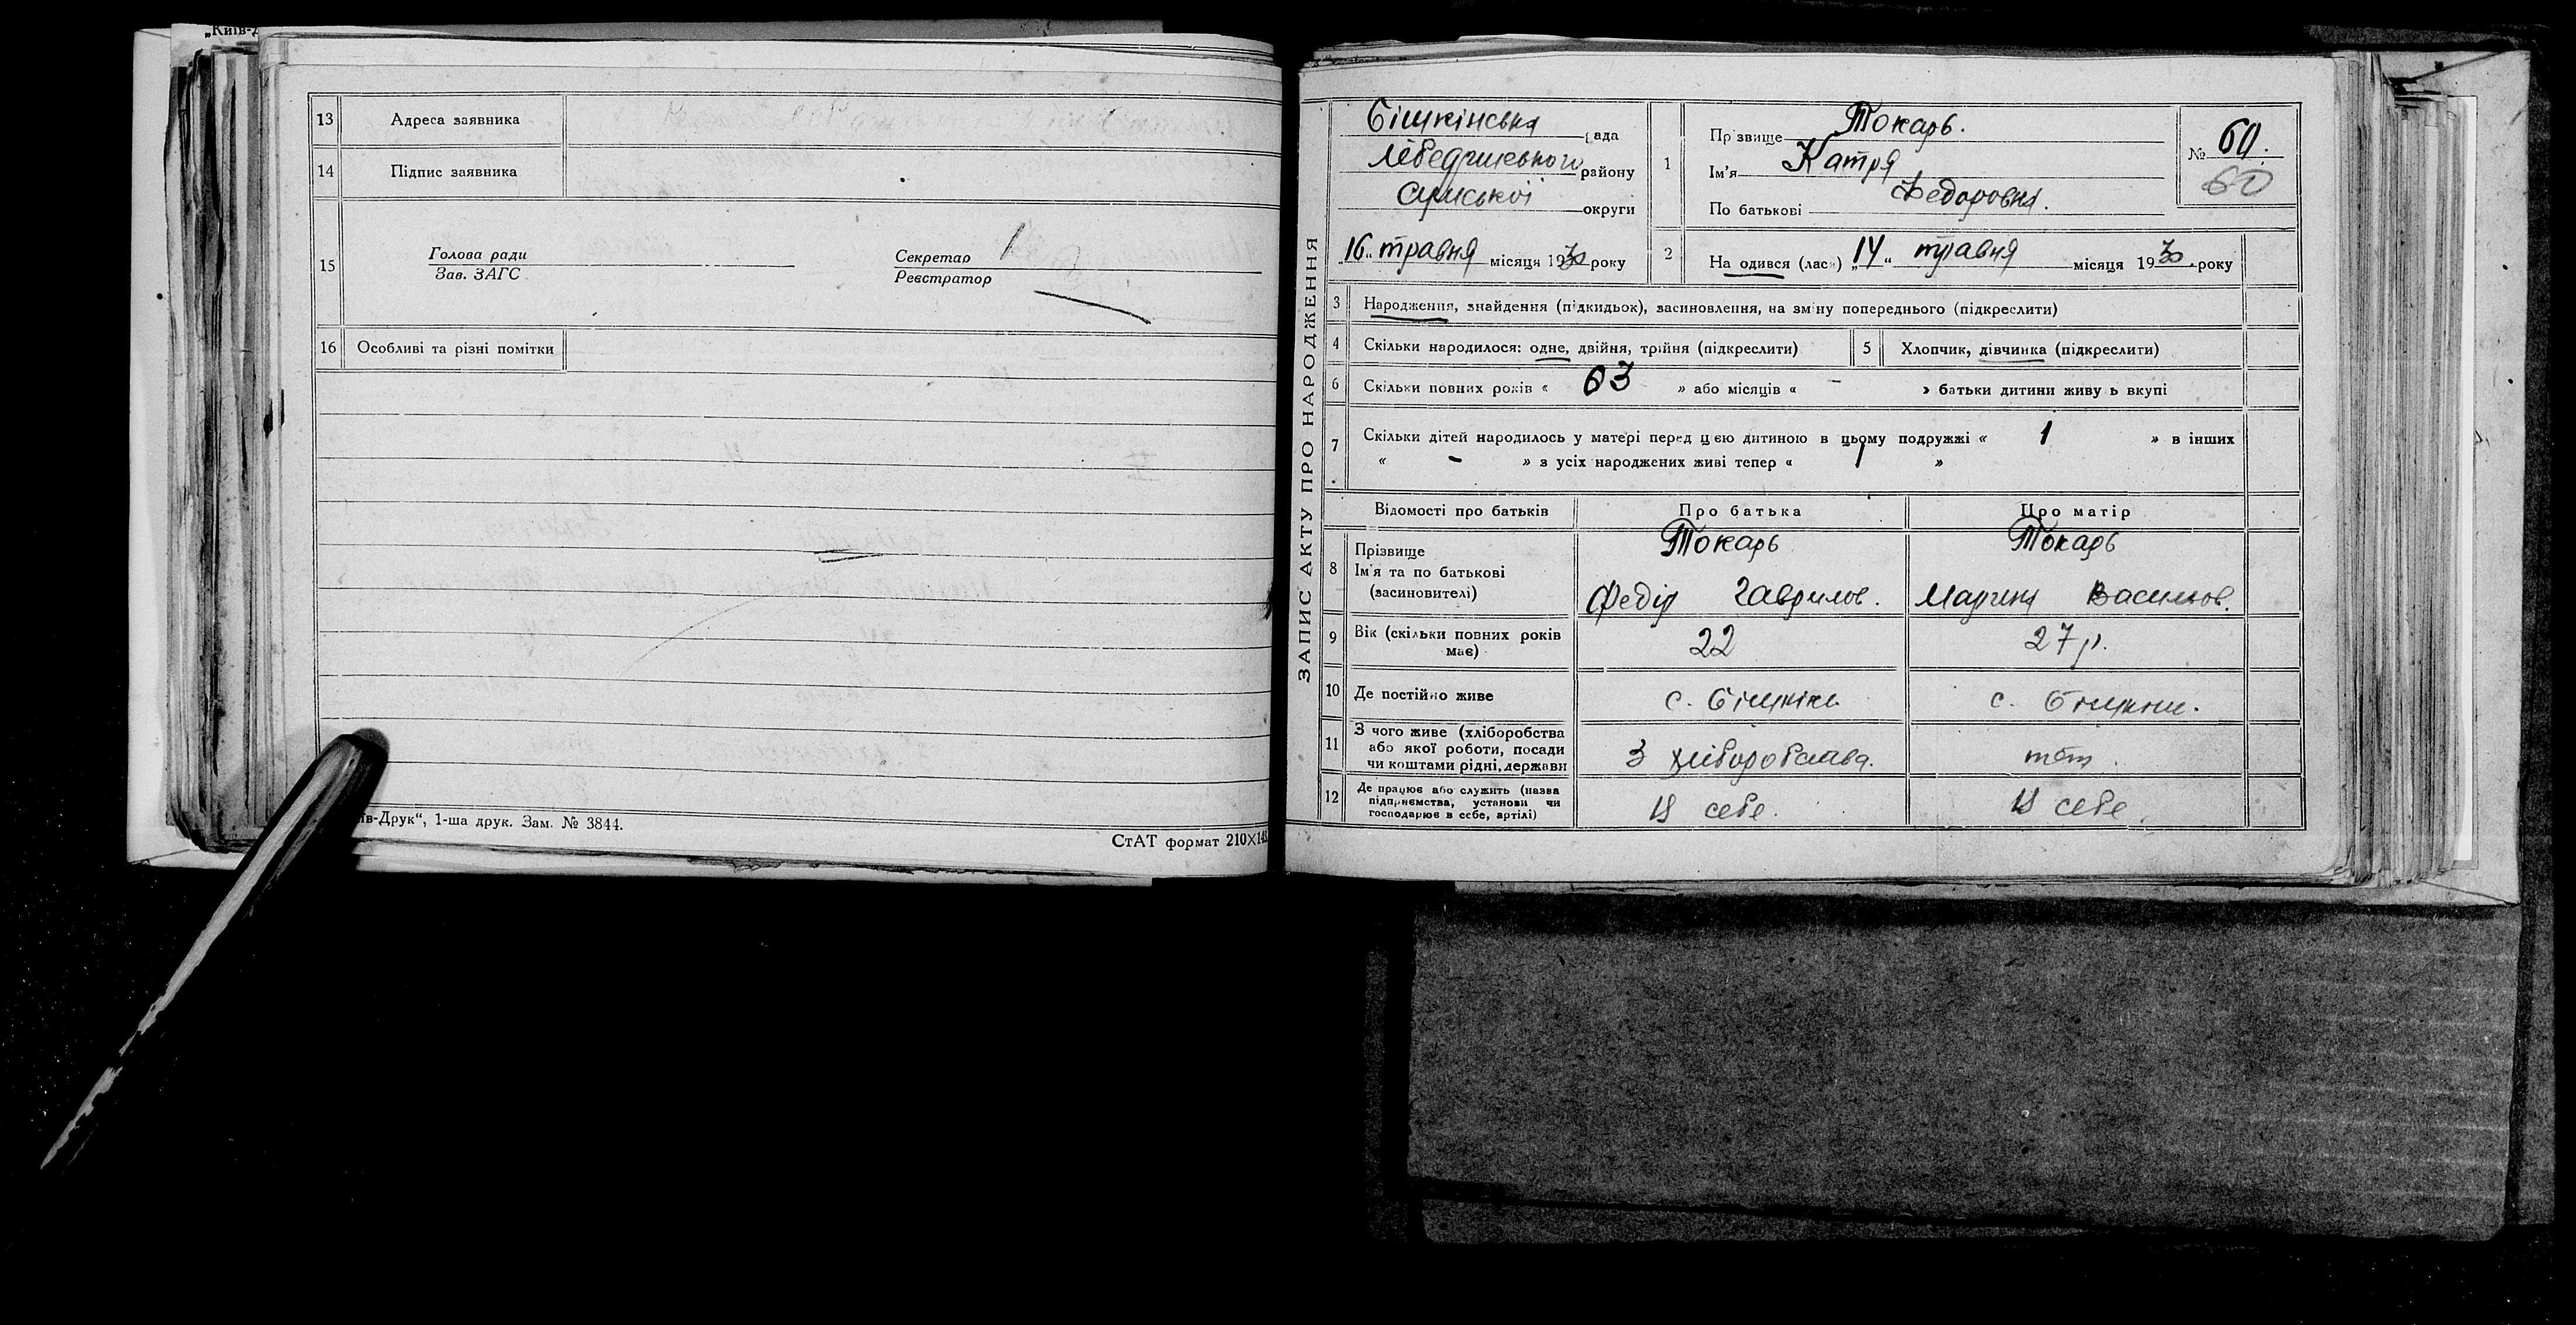 „Київ-Д
13 Адреса заявника
14 Підпис заявника
15 Голова ради
Зав. ЗАГС
Секретар
Реєстратор
16 Особливі та різні помітки
ів-Друк“, 1-ша друк. Зам. № 3844.
СтАТ формат 210×148
ЗАПИС АКТУ ПРО НАРОДЖЕННЯ
Бішкінська рада
Лебединського району
Сумської округи
„16„ травня місяця 1930 року
1 Пр звище Токарь.
Ім'я Катря
По батькові Федоровна.
№ 60.
60
2 На одився (лась) „14“ травня місяця 1930 року
3 Народження, знайдення (підкидьок), засиновлення, на зміну попереднього (підкреслити)
4 Скільки народилося: одне, двійня, трійня (підкреслити)
5 Хлопчик, дівчинка (підкреслити)
6 Скільки повних років « 03 » або місяців « - » батьки дитини живу ь вкупі
7 Скільки дітей народилось у матері перед цією дитиною в цьому подружжі « 1 » в інших
« - » з усіх народжених живі тепер « 1 »
Відомості про батьків Про батька Про матір
8 Прізвище Токарь Токарь
Ім'я та по батькові
(засиновителі) Федір Гаврилов. Марина Васильов.
9 Вік (скільки повних років має) 22 27 р.
10 Де постійно живе с. Бішкінь с. Бішкінь.
11 З чого живе (хліборобства
або якої роботи, посади
чи коштами рідні, держави З хліборобства. тот.
12 Де працює або служить (назва
підприємства, установи чи
господарює в себе, артілі) У себе. У себе.